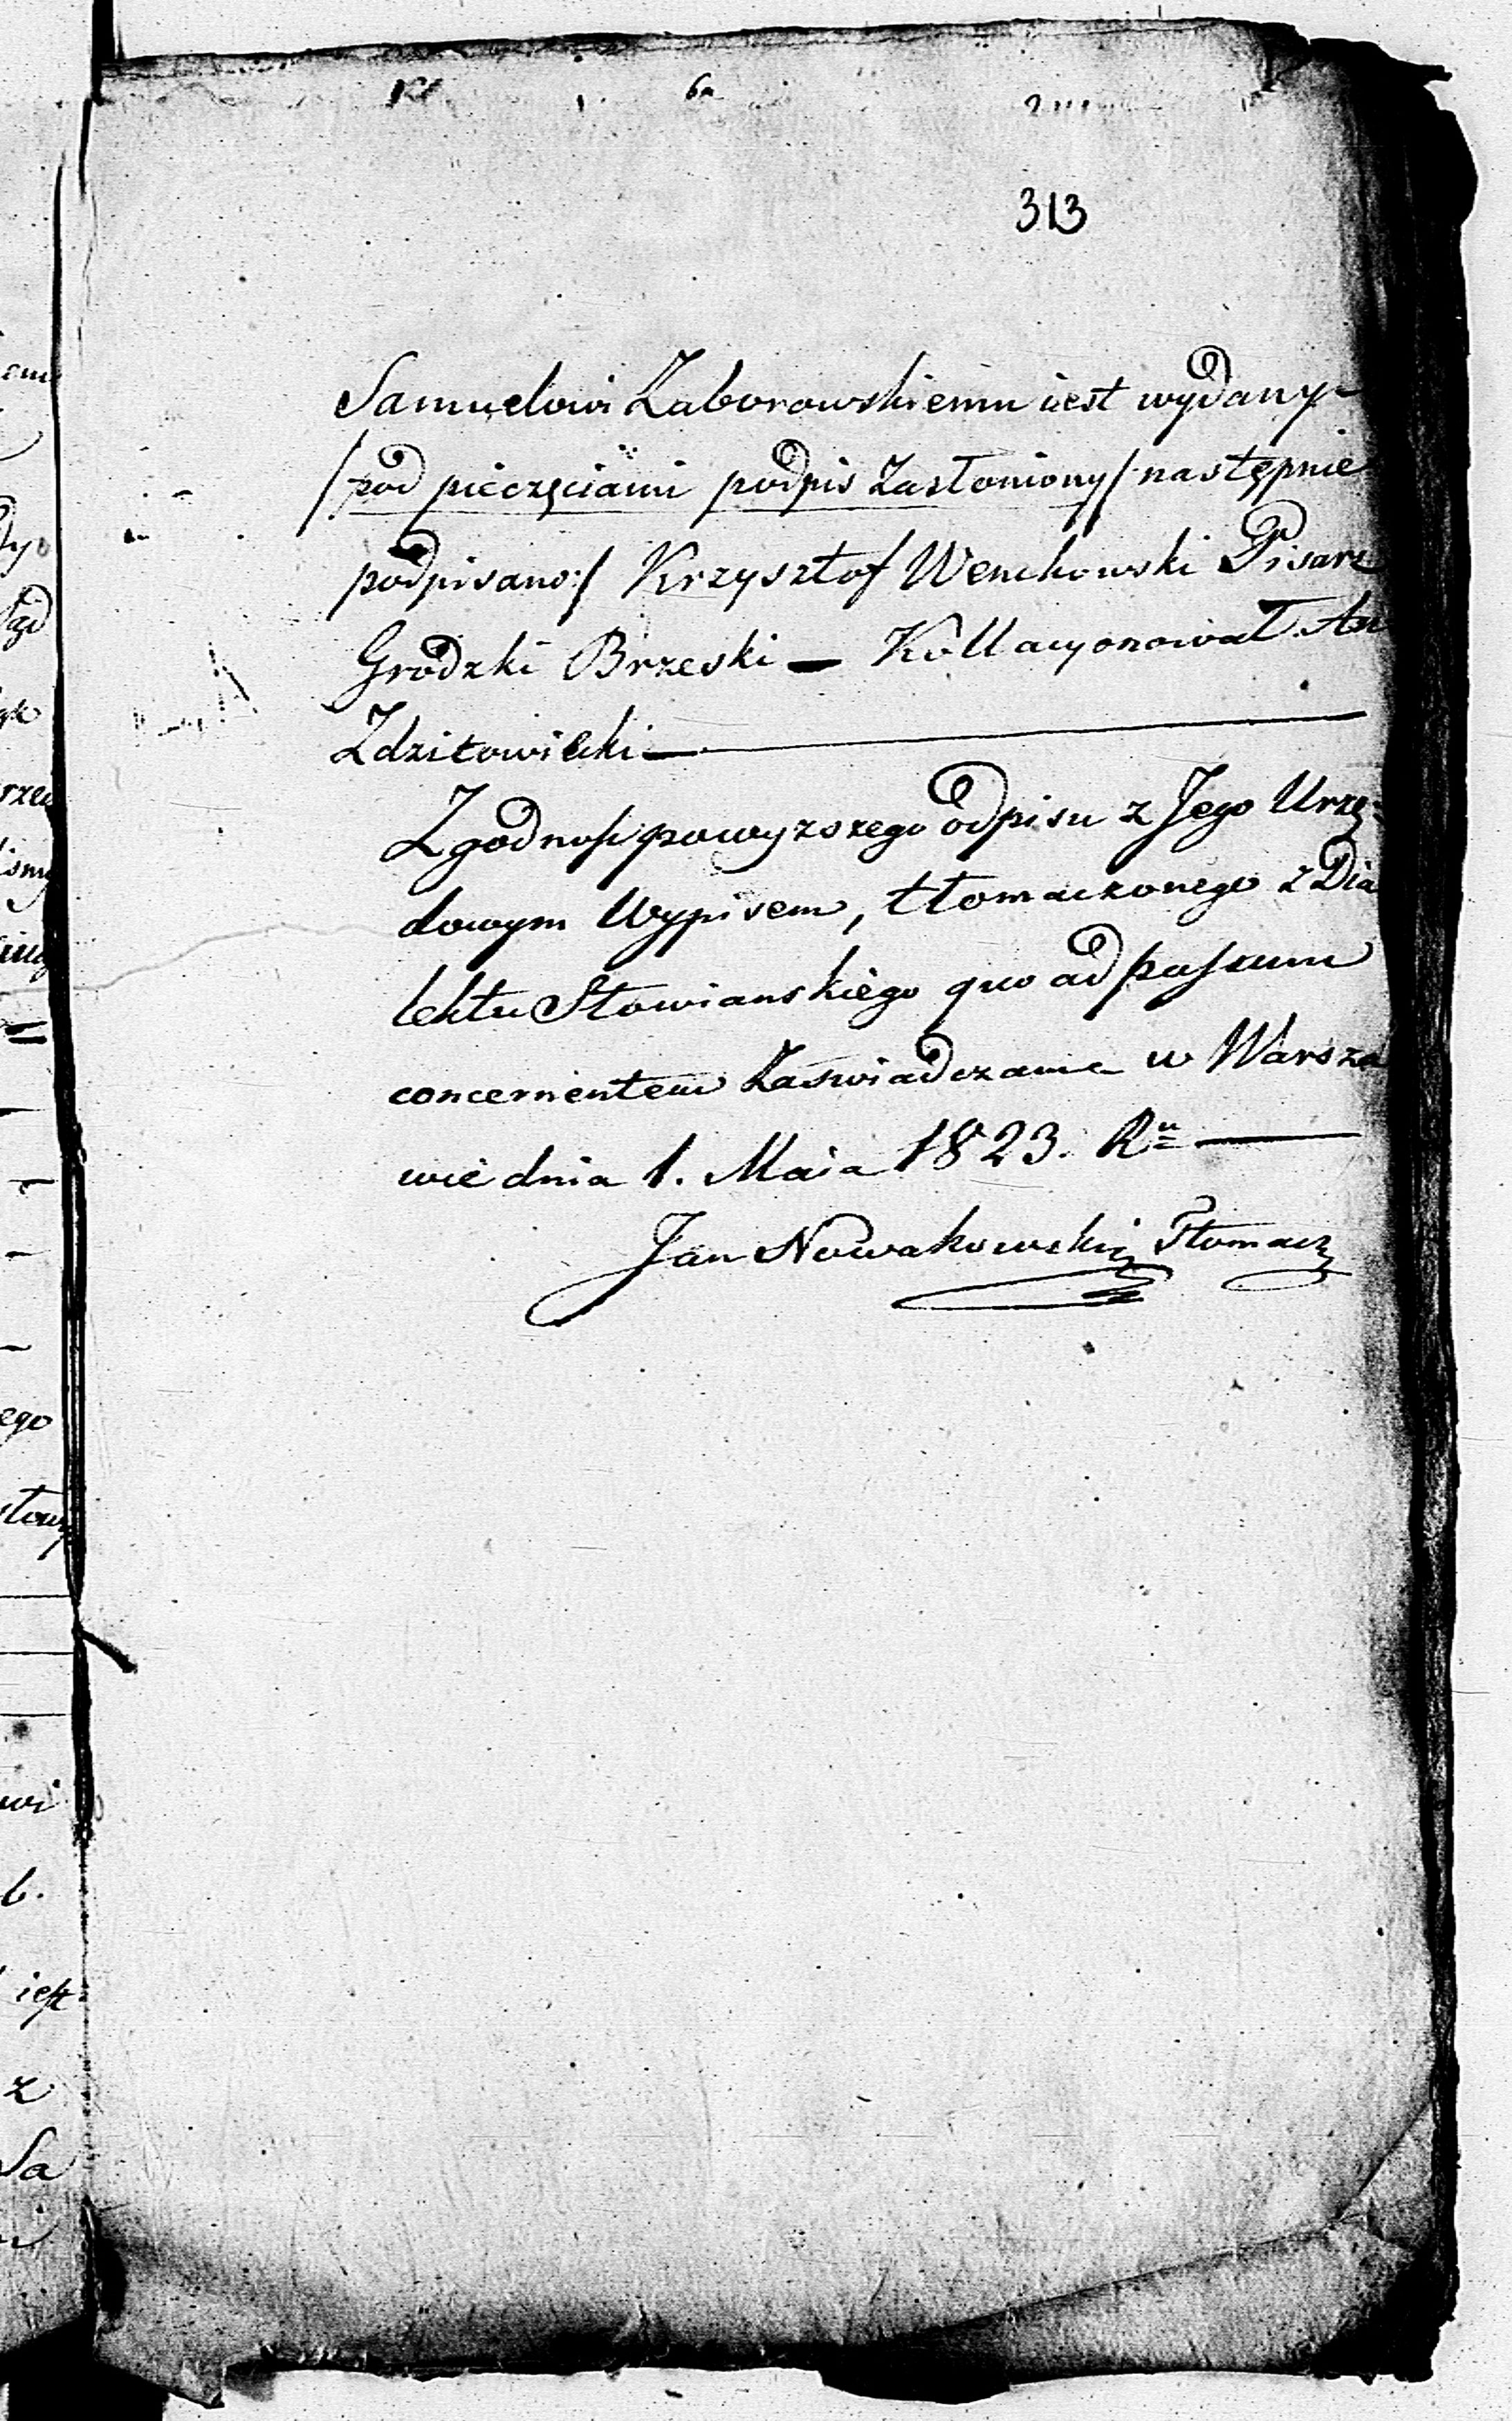 313
Samuelowi Zaborowskiemu iest wydany
/pod pieczęciami podpis zasłoniony/ następnie
podpisano:/ Krzysztof Wenckowski Pisarz
Grodzki Brzeski — Kollacyonował An
Zdzitowiecki —
Zgodność powyzszego odpisu z Jego Urzę-
dowym Wypisem, tłomaczonego z Dia
lektu Słowianskiego quo ad passum
concernentem zaswiadczam w Warsza
wie dnia 1. Maia 1823. Ru —
Jan Nowakowski Tłomacz